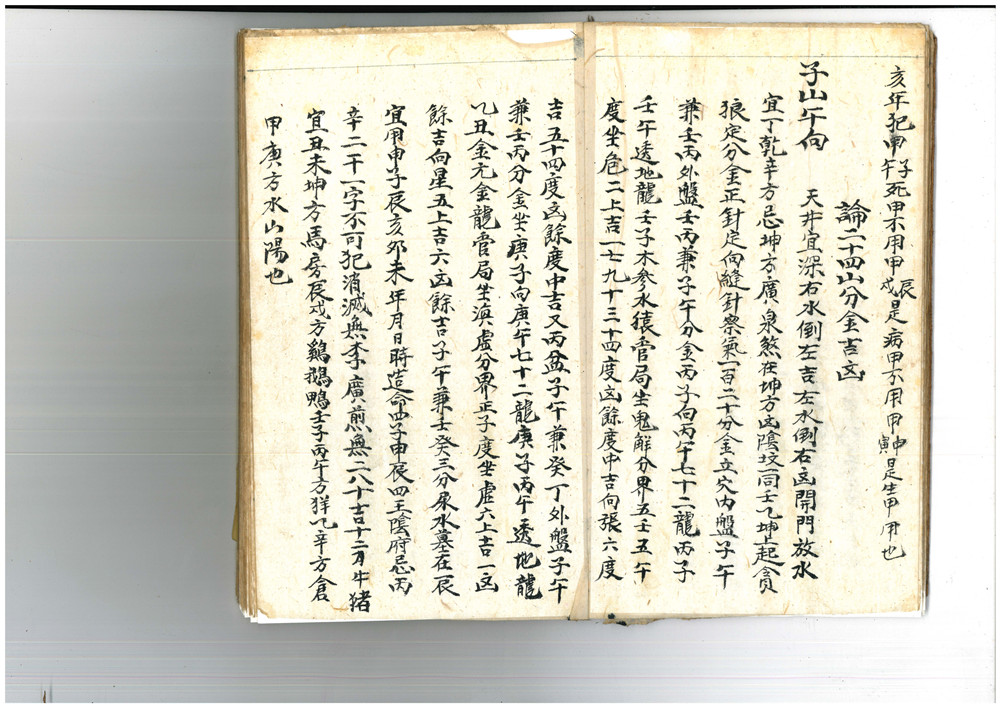 亥年犯甲子午死甲不用甲辰戌是病甲不用甲申寅是生甲用也
論二十四山分金吉凶
子山午向 天井宜深右水倒左吉左水倒右凶開門放水
宜丁乾辛方忌坤方廣泉煞在坤方凶陰坟一同壬乙坤上起貪
狼定分金正針定向縫針察氣一百二十分金立穴内盤子午
兼壬丙外盤壬丙兼子午分金丙子向丙午七十二龍丙子
壬午透地龍壬子木參水猿管局坐鬼解分界五壬五午
度坐危二上吉一七九十三十四度凶餘度中吉向張六度
吉五十四度凶餘度中吉又丙盆子午兼癸丁外盤子午
兼壬丙分金坐庚子向庚午七十二龍庚子丙午透地龍
乙丑金亢金龍管局坐滇虛分界正子度坐虛六上吉一凶
餘吉向星五上吉六凶餘吉子午兼壬癸三分尿水墓在辰
宜用申子辰亥卯未年月日時造命四子申辰四王陰府忌丙
辛二干一字不可犯消滅無李廣煎無二八十吉十二月牛猪
宜丑未坤方馬房辰戌方鷄鵝鴨壬子丙午方羊乙辛方倉
甲庚方水山陽也